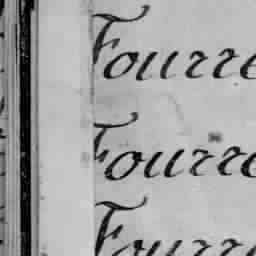 Fourre
Fourre
Fourre